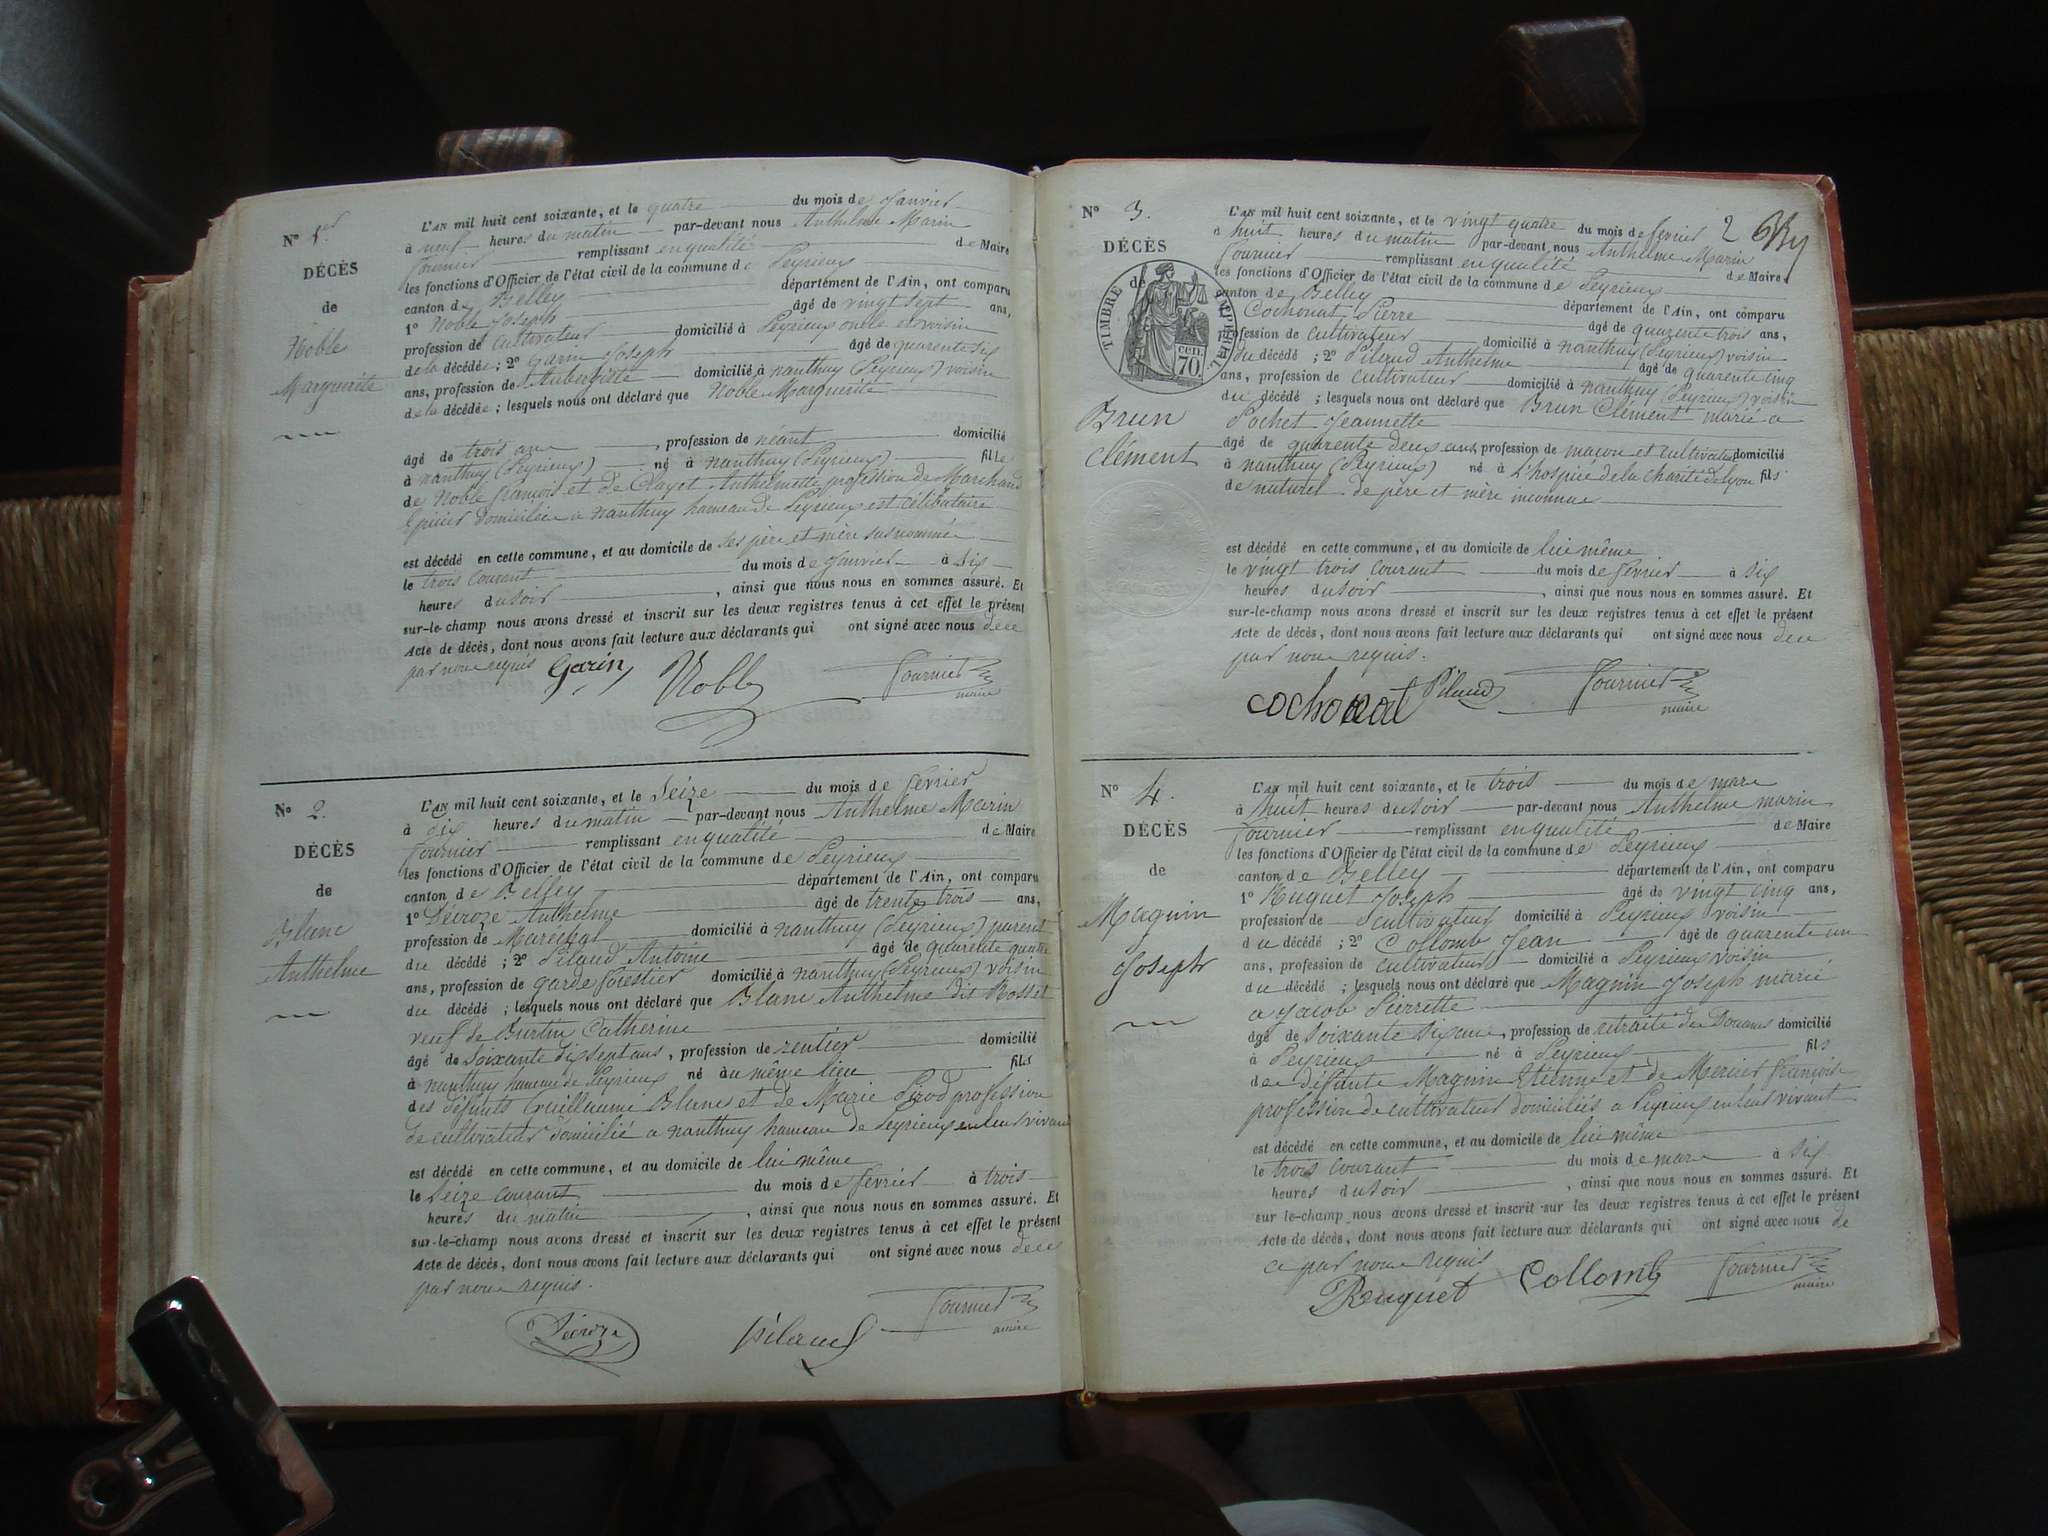 N° 1er
DÉCÈS
de
Noble
Marguerite
L'AN mil huit cent soixante, et le quatre du mois de Janvier
à neuf heures du matin par-devant nous Anthelme Marin
Fournier remplissant en qualité de Maire
les fonctions d'Officier de l'état civil de la commune de Peyrieux
canton de Belley département de l'Ain, ont comparu
1° Noble Joseph âgé de vingt sept ans,
profession de cultivateur domicilié à Peyrieux oncle et voisin
de la décédée; 2° Garin Joseph âgé de quarente six
ans, profession de Aubergiste domicilié à nanthuy (Peyrieux) voisin
de la décédée; lesquels nous ont déclaré que Noble Marguerite
âgé de trois ans, profession de néant domicilié
à nanthuy (Peyrieux) né à nanthuy (Peyrieux) fille
de Noble françois et de Clayet Anthelmette profession de Marchand
Epicier domiciliée a nanthuy hameau de Peyrieux est célibataire
est décédé en cette commune, et au domicile de ses père et mère susnommée
le trois courant du mois de Janvier à six
heures du soir, ainsi que nous nous en sommes assuré. Et
sur-le-champ nous avons dressé et inscrit sur les deux registres tenus à cet effet le présent
Acte de décès, dont nous avons fait lecture aux déclarants qui ont signé avec nous de ce
par nous requis Garin Noble Fournier
maire
N° 2.
DÉCÈS
de
Blanc
Anthelme
L'AN mil huit cent soixante, et le seize du mois de février
à dix heures du matin par-devant nous Anthelme Marin
Fournier remplissant en qualité de Maire
les fonctions d'Officier de l'état civil de la commune de Peyrieux
canton de Belley département de l'Ain, ont comparu
1° Décroze Anthelme âgé de trente trois ans,
profession de Maréchal domicilié à nanthuy (Peyrieux) parent
du décédé; 2° Pilaud Antoine âgé de quarente quatre
ans, profession de garde forestier domicilié à nanthuy (Peyrieux) voisin
du décédé; lesquels nous ont déclaré que Blanc Anthelme dit Rosset
veuf de Burtin Catherine
âgé de soixante dix sept ans, profession de rentier domicilié
à nanthuy hameau de Peyrieux né au même lieu fils
des défunts Guillaume Blanc et de Marie Pirod profession
de cultivateur domicilié a nanthuy hameau de Peyrieux en leur vivant
est décédé en cette commune, et au domicile de lui même
le seize courant du mois de février à trois
heures du matin, ainsi que nous nous en sommes assuré. Et
sur-le-champ nous avons dressé et inscrit sur les deux registres tenus à cet effet le présent
Acte de décès, dont nous avons fait lecture aux déclarants qui ont signé avec nous de ce
par nous requis.
Décroze Pilaud Fournier
maire
N° 3.
DÉCÈS
de
TIMBRE IMPERIAL
CENT.
70
Brun
Clément
2
L'AN mil huit cent soixante, et le vingt quatre du mois de février
à huit heures du matin par-devant nous Anthelme Marin
Fournier remplissant en qualité de Maire
les fonctions d'Officier de l'état civil de la commune de Peyrieux
canton de Belley département de l'Ain, ont comparu
Cochonat Pierre âgé de quarente trois ans,
profession de cultivateur domicilié à nanthuy (Peyrieux) voisin
du décédé; 2° Pilaud Anthelme âgé de quarente cinq
ans, profession de cultivateur domicilié à nanthuy (Peyrieux) voisin
du décédé; lesquels nous ont déclaré que Brun Clément marié a
Pochet Jeannette
âgé de quarente deux ans, profession de maçon et cultivateur domicilié
à nanthuy (Peyrieux) né à L'hospice de la charité de Lyon fils
de naturel de père et mère inconnue
est décédé en cette commune, et au domicile de lui même
le vingt trois courant du mois de février à six
heures du soir, ainsi que nous nous en sommes assuré. Et
sur-le-champ nous avons dressé et inscrit sur les deux registres tenus à cet effet le présent
Acte de décès, dont nous avons fait lecture aux déclarants qui ont signé avec nous de ce
par nous requis.
cochonat Pilaud Fournier
maire
N° 4.
DÉCÈS
de
Magnin
Joseph
L'AN mil huit cent soixante, et le trois du mois de mars
à huit heures du soir par-devant nous Anthelme marin
Fournier remplissant en qualité de Maire
les fonctions d'Officier de l'état civil de la commune de Peyrieux
canton de Belley département de l'Ain, ont comparu
1° Ruguet Joseph âgé de vingt cinq ans,
profession de cultivateur domicilié à Peyrieux voisin
du décédé; 2° Collomb Jean âgé de quarente un
ans, profession de cultivateur domicilié à Peyrieux voisin
du décédé; lesquels nous ont déclaré que Magnin Joseph marié
a Jacob Pierrette
âgé de soixante six ans, profession de retraité des Douanes domicilié
à Peyrieux né à Peyrieux fils
des défunts Magnin Etienne et de Mercier françoise
profession de cultivateur domiciliés a Peyrieux en leur vivant
est décédé en cette commune, et au domicile de lui même
le trois courant du mois de mars à six
heures du soir, ainsi que nous nous en sommes assuré. Et
sur le-champ nous avons dressé et inscrit sur les deux registres tenus à cet effet le présent
Acte de décès, dont nous avons fait lecture aux déclarants qui ont signé avec nous de
ce par nous requis
Ruguet Collomb Fournier
maire